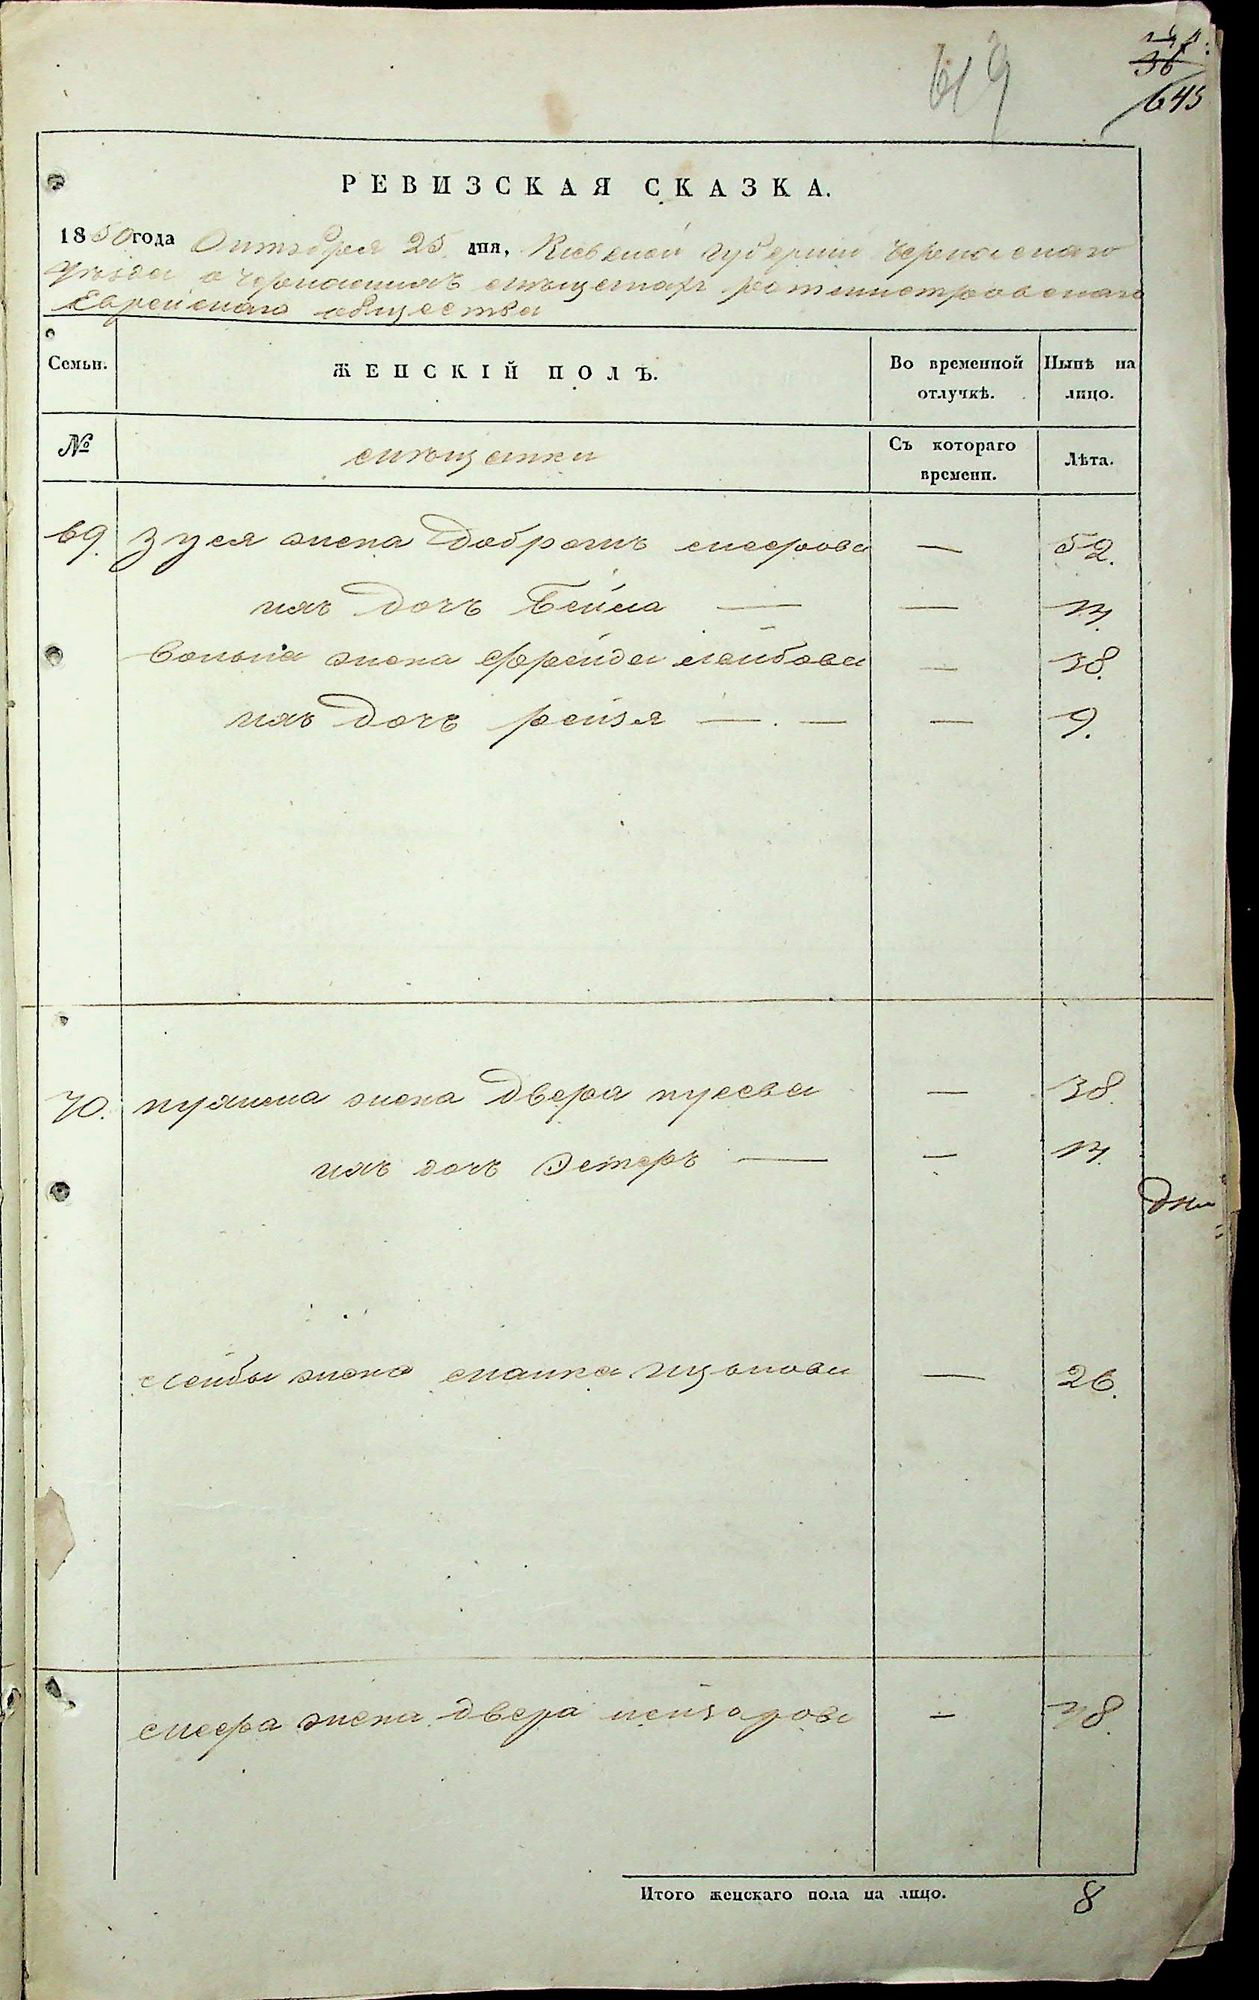 619
36
645
РЕВИЗСКАЯ СКАЗКА.
1850 года Октября 25 дня, Киевской губернии Черкаскаго
уезда о черкаскихъ мещанахъ ротмистровскаго
Еврейскаго общества
Семьи. ЖЕНСКІЙ ПОЛЪ. Во временной отлучкѣ. Нынѣ на лицо.
№ мещанки Съ котораго времени. Лѣта.
69. Зуся жена Добрышъ Меерова — 52.
ихъ дочь Бейла — — 14.
Волька жена Фрейда Лейбова — 38.
ихъ дочь рейзя — . — — 9.
70. жена Двера — 38.
ихъ дочь Эстеръ — — 14.
Лейбы жена — 26.
Меера жена Двера — 48.
Итого женскаго пола на лицо. 8